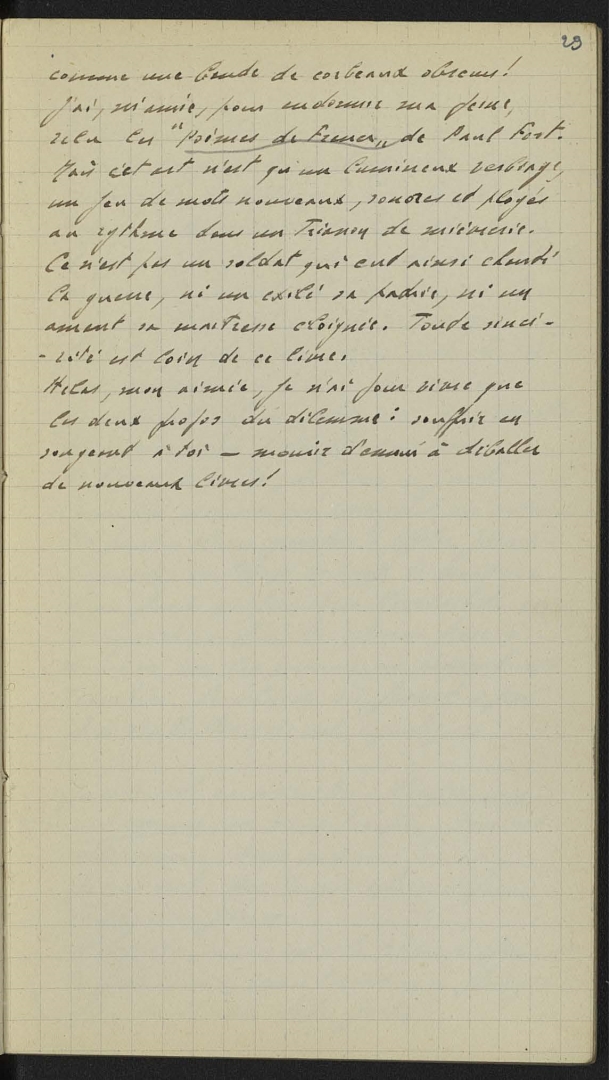 23
comme une bande de corbeaux obscurs!
J'ai, m'amie, pour endormir ma peine,
relu les "Poèmes de France„ de Paul Fort.
Mais cet art n'est qu'un lumineux verbiage,
un jeu de mots nouveaux, sonores et ployés
au rythme dans un Trianon de mièvrerie.
Ce n'est pas un soldat qui eut ainsi chanté
la guerre, ni un exilé sa patrie, ni un
amant sa maitresse eloignée. Toute sincé-
-rité est loin de ce livre.
Helas, mon aimée, je n'ai pour vivre que
les deux propos du dilemme: souffrir en
songeant à toi — mourir d'ennui à déballer
de nouveaux livres!